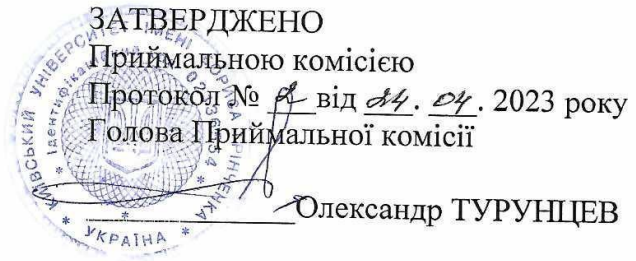 ЗАТВЕРДЖЕНО
Приймальною комісією
Протокол № 2 від 24. 04. 2023 року
Голова Приймальної комісії
Олександр ТУРУНЦЕВ
КИЇВСЬКИЙ УНІВЕРСИТЕТ ІМЕНІ БОРИСА ГРІНЧЕНКА
* УКРАЇНА *